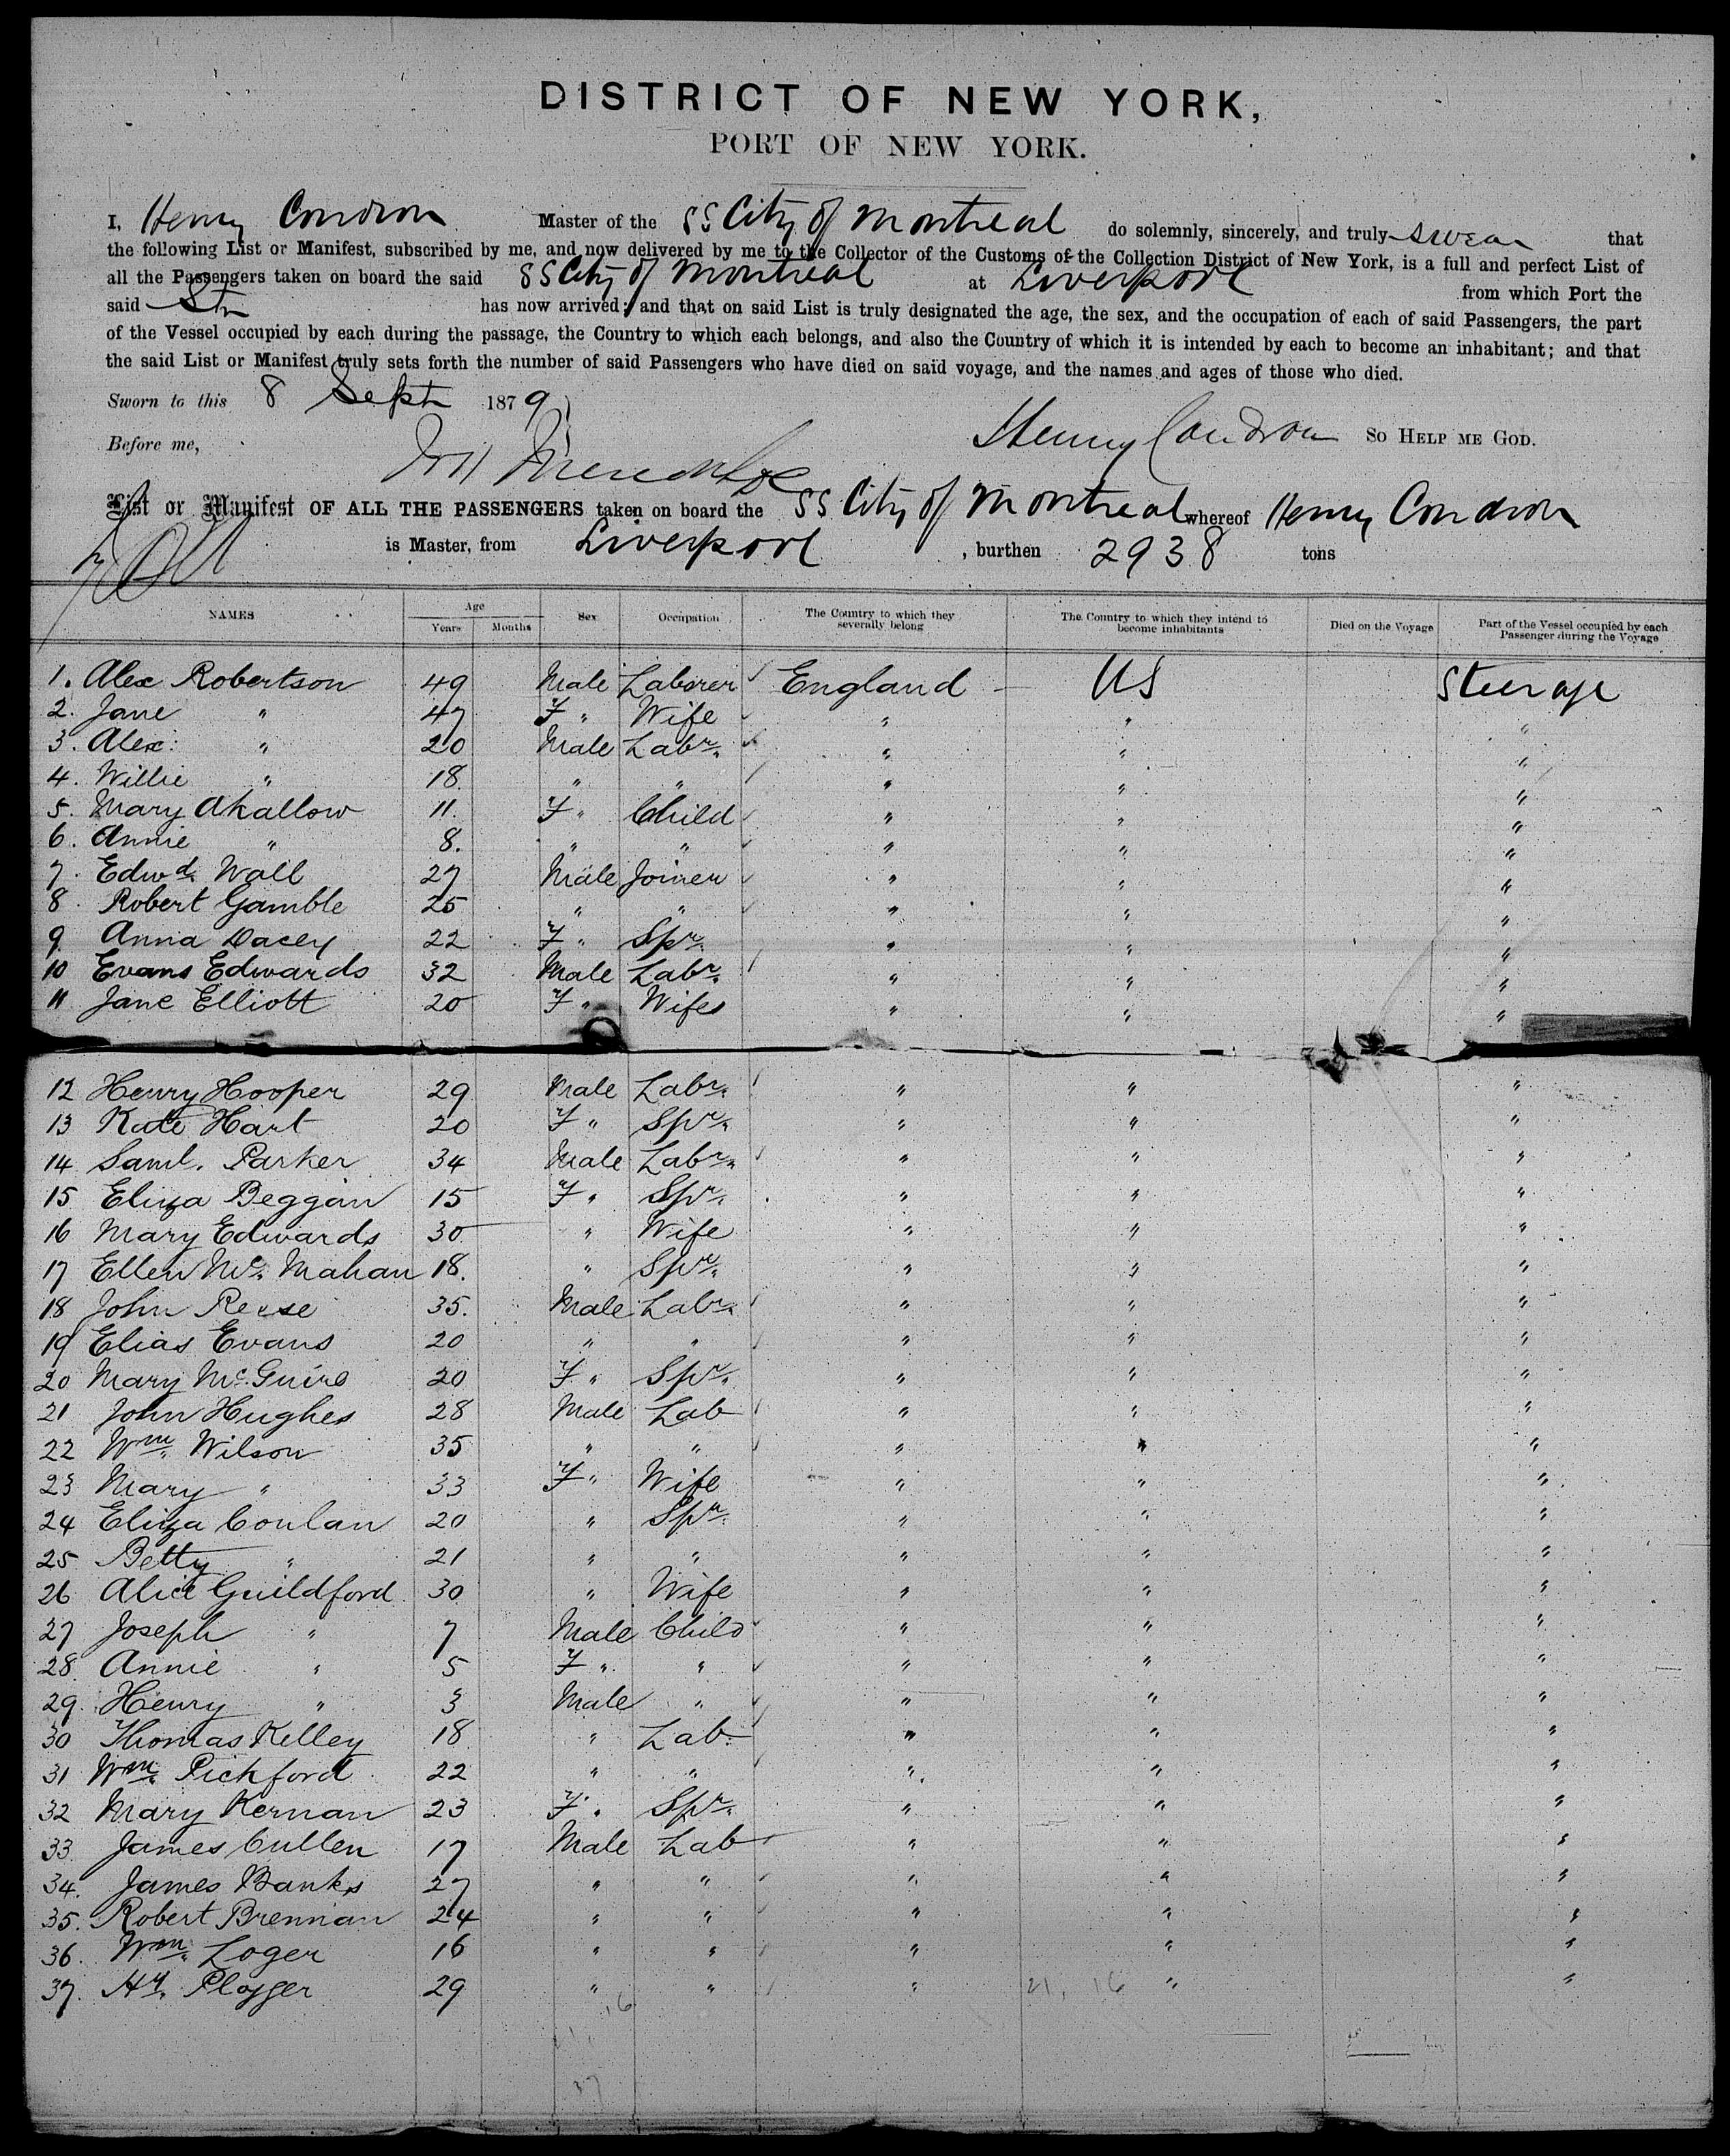 DISTRICT OF NEW YORK,
PORT OF NEW YORK.
I, Henry Condron Master of the SS City of Montreal do solemnly, sincerely, and truly swear that
the following List or Manifest, subscribed by me, and now delivered by me to the Collector of the Customs of the Collection District of New York, is a full and perfect List of
all the Passengers taken on board the said SS City of Montreal at Liverpool from which Port the
said Str has now arrived; and that on said List is truly designated the age, the sex, and the occupation of each of said Passengers, the part
of the Vessel occupied by each during the passage, the Country to which each belongs, and also the Country of which it is intended by each to become an inhabitant; and that
the said List or Manifest truly sets forth the number of said Passengers who have died on said voyage, and the names and ages of those who died.
Sworn to this 8 Sept 1879
Before me, Henry Condron SO HELP ME GOD.
List or Manifest OF ALL THE PASSENGERS taken on board the SS City of Montreal whereof Henry Condron
is Master, from Liverpool, burthen 2938 tons
NAMES Age Years Months Sex Occupation The Country to which they severally belong The Country to which they intend to become inhabitants Died on the Voyage Part of the Vessel occupied by each Passenger during the Voyage
1. Alex Robertson 49 Male Laborer England US Steerage
2. Jane " 47 F " Wife " " "
3. Alex: " 20 Male Labr. " " "
4. Willie " 18 " " " " "
5. Mary Akallow 11. F " Child " " "
6. Annie " 8. " " " " "
7. Edwd. Wall 27 Male Joiner " " "
8. Robert Gamble 25 " " " " "
9. Anna Dacey 22 F " Spr. " " "
10 Evans Edwards 32 Male Labr. " " "
11 Jane Elliott 20 F " Wifes " " "
12 Henry Hooper 29 Male Labr. " " "
13 Kate Hart 20 F " Spr. " " "
14 Saml. Parker 34 Male Labr. " " "
15 Eliza Beggan 15 F " Spr. " " "
16 Mary Edwards 30 " Wife " " "
17 Ellen Mc. Mahan 18. " Spr. " " "
18 John Reese 35. Male Labr. " " "
19 Elias Evans 20 " " " " "
20 Mary McGuire 20 F " Spr. " " "
21 John Hughes 28 Male Lab " " "
22 Wm. Wilson 35 " " " " "
23 Mary " 33 F " Wife " " "
24 Eliza Conlan 20 " Spr. " " "
25 Betty " 21 " " " " "
26 Alice Guildford 30 " Wife " " "
27 Joseph " 7 Male Child " " "
28 Annie " 5 F " " " " "
29. Henry " 3 Male " " " "
30 Thomas Kelley 18 " Lab. " " "
31 Wm. Pickford 22 " " " " "
32 Mary Kernan 23 F " Spr. " " "
33. James Cullen 17 Male Lab " " "
34. James Banks 27 " " " " "
35. Robert Brennan 24 " " " " "
36. Wm. Loger 16 " " " " "
37. Hy. Plogger 29 " " " 21, 16 " "
16
37